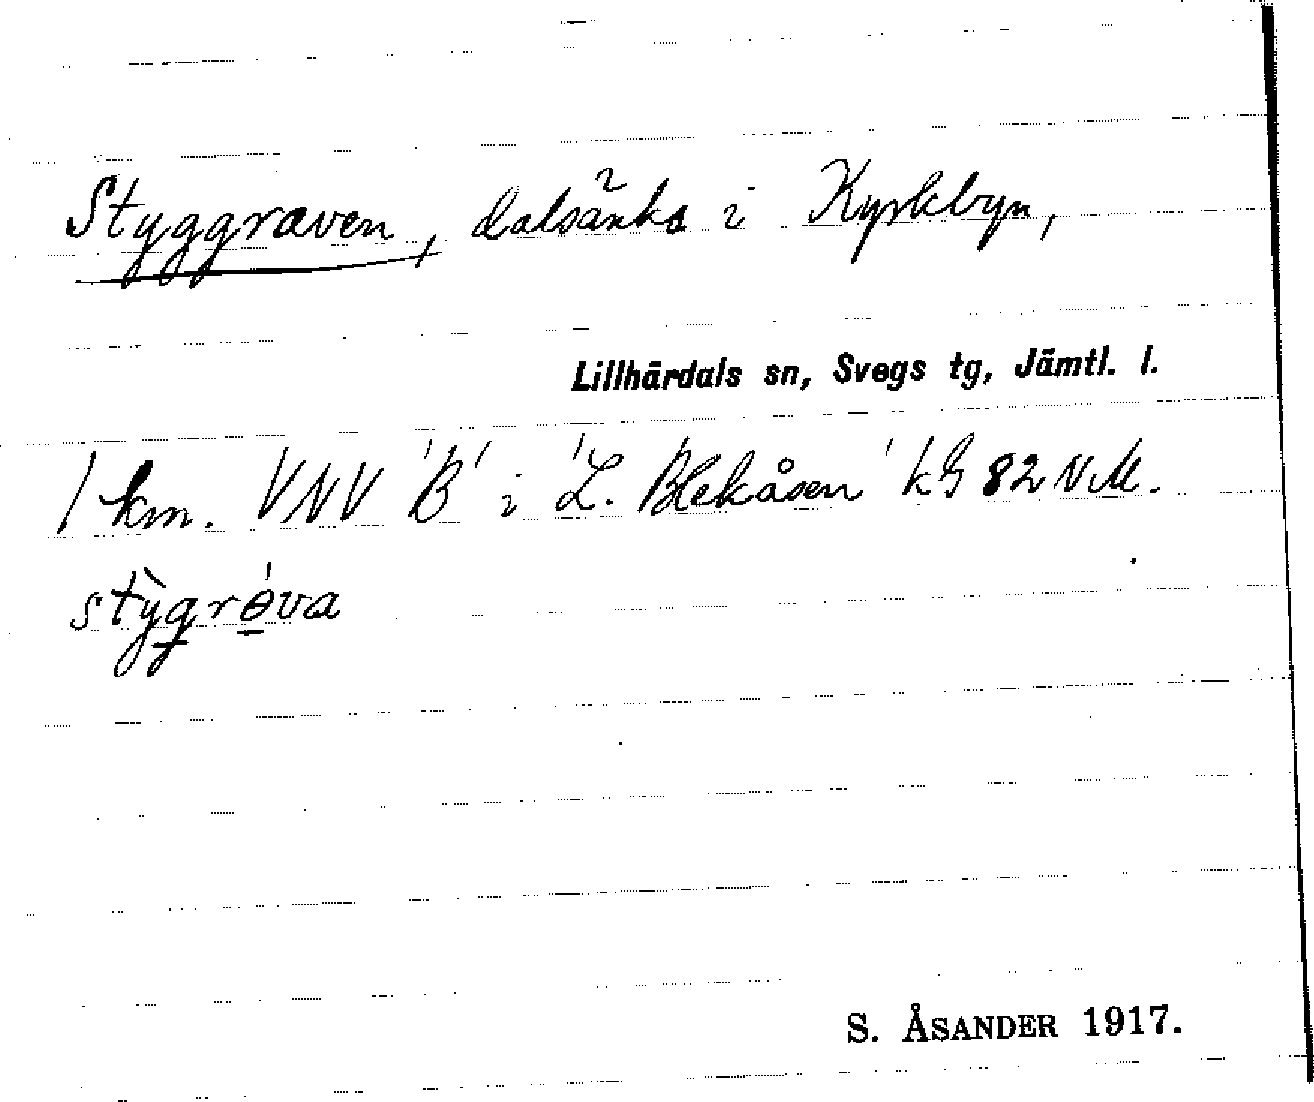 Styggraven, dalsänka i Kyrkbyn,
Lillhärdals sn, Svegs tg, Jämtl. l.
1 km. VNV 'B' i 'L. Blekåsen' kG 82 NM.
stỳgrǿva
S. ÅSANDER 1917.